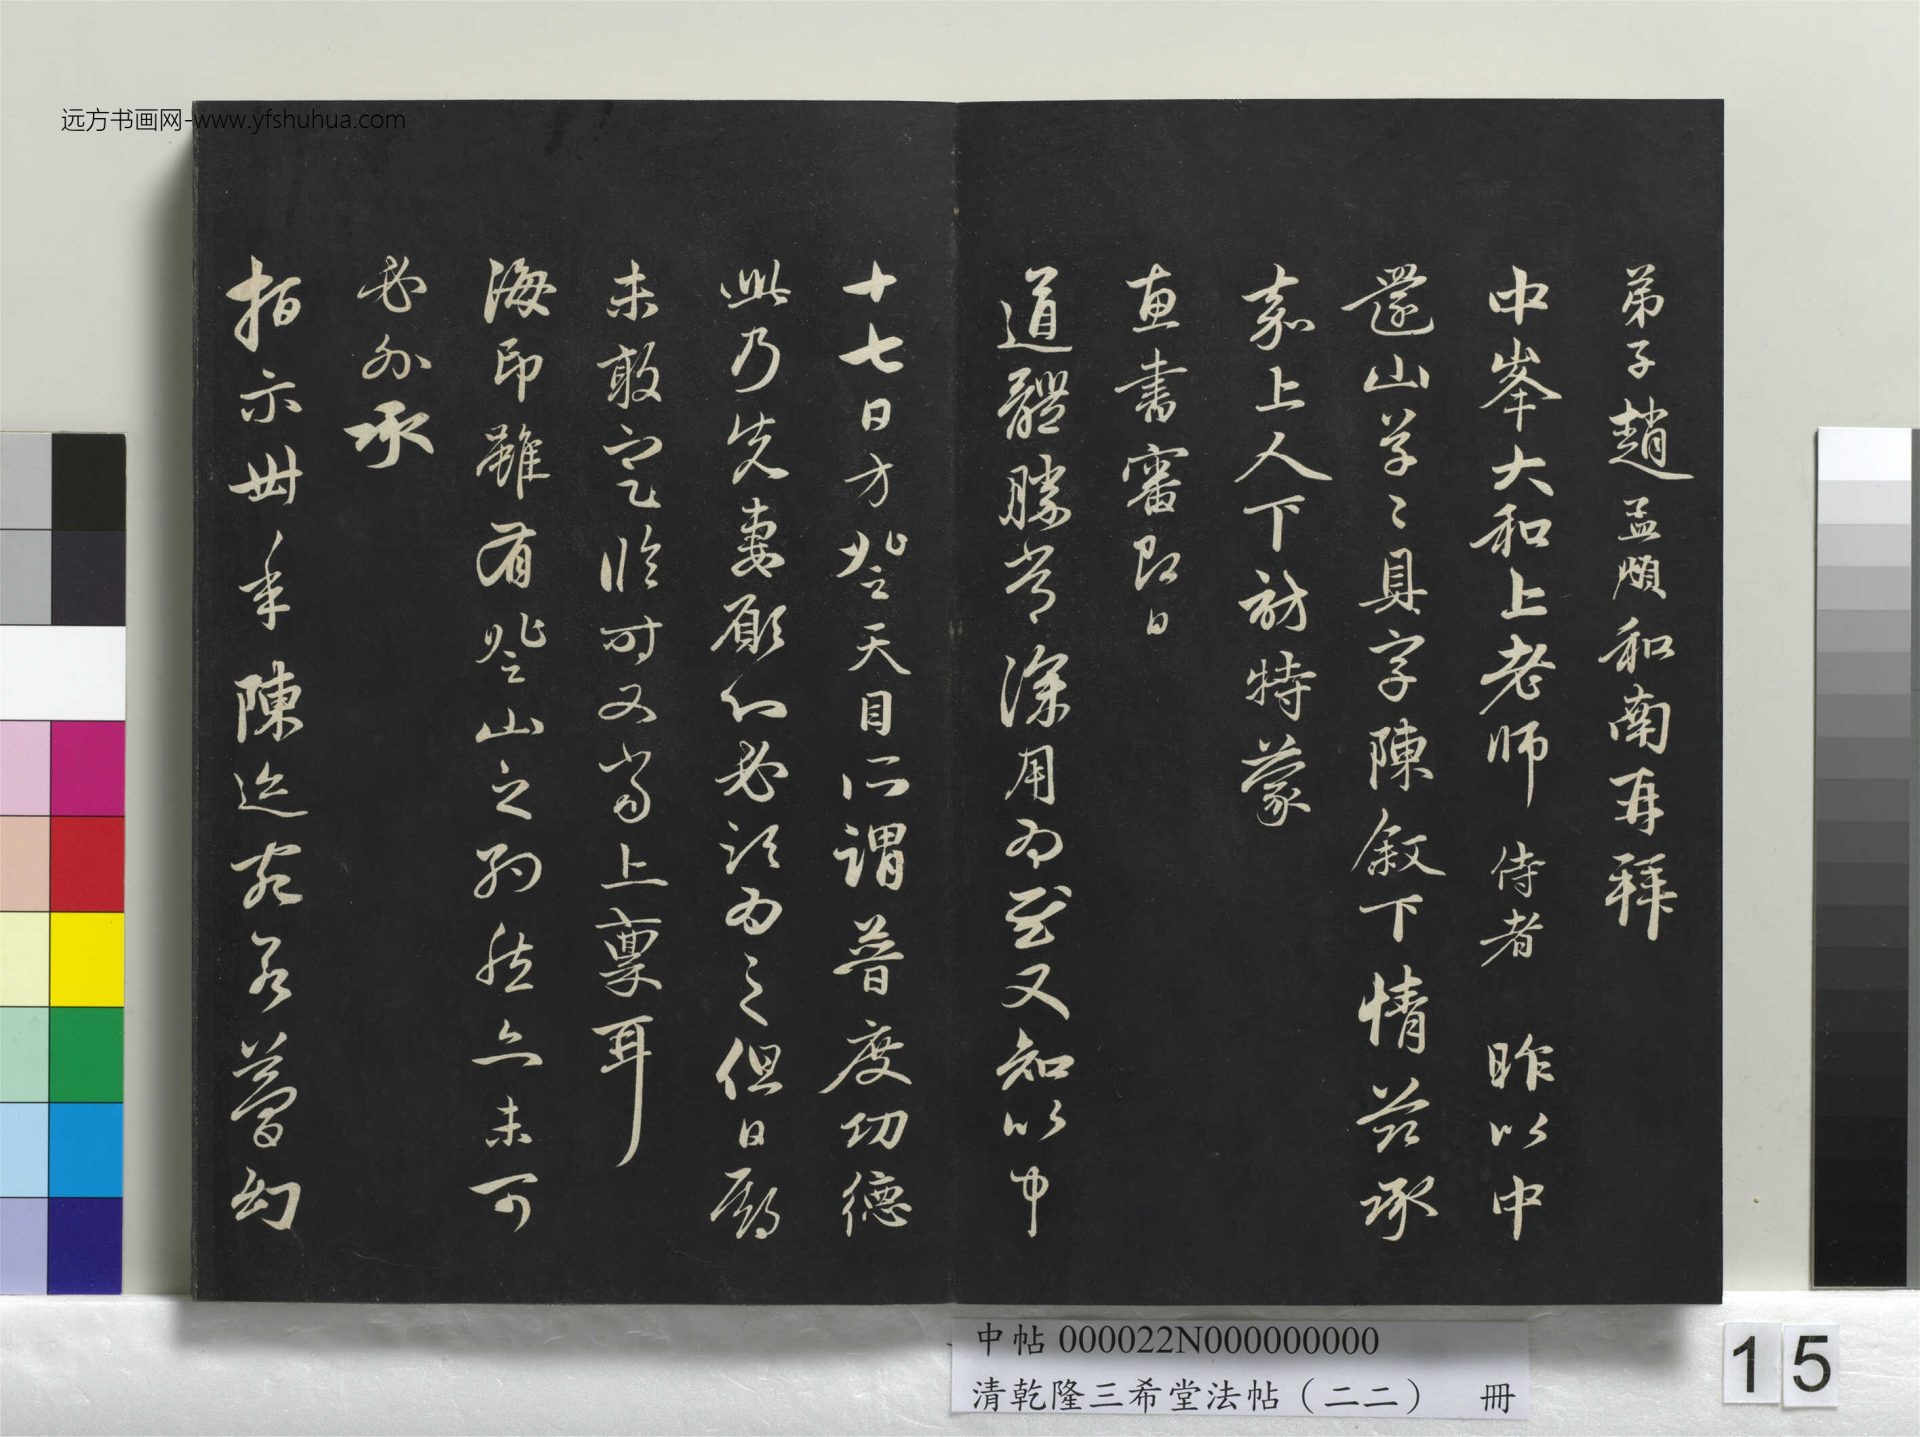 远方书画网-www.yfshuhua.com
弟子趙孟頫和南再拜
中峯大和上老師侍者 昨以中
還山草々具字陳敘下情茲承
嘉上人下訪特蒙
惠書審即日
道體勝常深用為慰又知以中
十七日方登天目所謂普度功德
此乃先妻願心必須為之但日
未敢定臨時又當上稟耳
海印雖有登山之約然亦未可
必外承
指示卅年陳迹宛若夢幻
中帖 000022N000000000
清乾隆三希堂法帖（二二） 冊
15